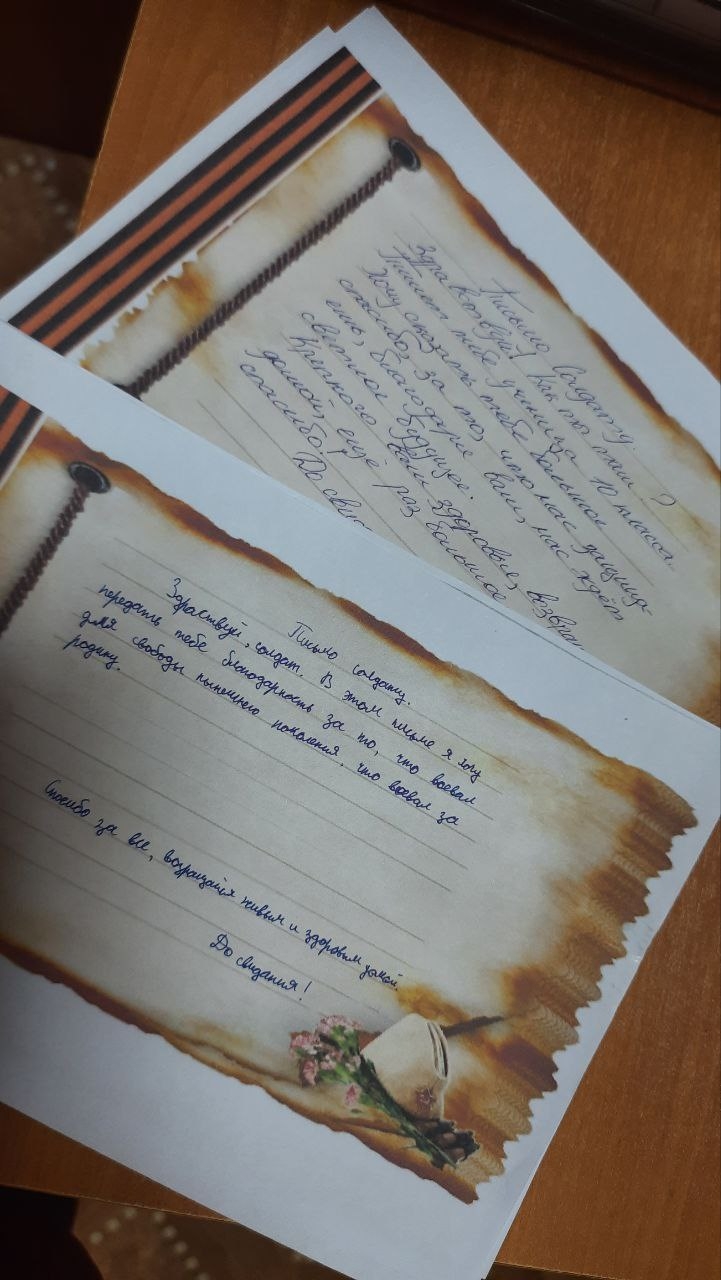 Письмо солдату.
Здравствуй! Как ты там?
Пишет тебе ученица 10 класса.
Хочу сказать тебе большое
спасибо, за то, что нас защища-
ешь, благодаря вам, нас ждёт
светлое будущее.
Крепкого вам здоровья, возвра
домой, ещё раз большое
спасибо!
До свид
Письмо солдату.
Здраствуй, солдат. В этом письме я хочу
передать тебе благодарность за то, что воевал
для свободы нынешнего поколения, что воевал за
родину.
Спасибо за все, возращайся живым и здоровым домой.
До свидания!